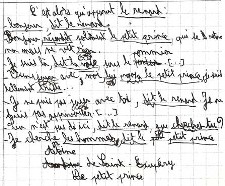 C'est alors qu'apparut le renard.
- bonjour, dit le renard.
Bonjour répondit poliment le petit prince, qui se
mais ne vit rien.
- Je suis là, dit la voix, sous le pommier [...]
- Viens jouer avec moi, dit le petit prince, je suis
tellement triste...
- Je ne puis pas jouer avec toi, dit le renard. Je ne
suis pas apprivoisé [...]
- Tu n'es pas d'ici, dit le renard, que cherches-tu ?
- Je cherche les hommes, dit le petit prince
Antoine
de Saint-Exupéry
Le petit prince